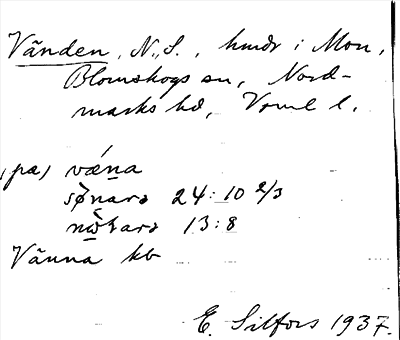 Vänden, N., S., hmdr i Mon,
Blomskogs sn, Nord-
marks hd, Vrml l.
(på) væ̀na
sø̀narə 24:10 2/3
nò̱rarə 13:8
Vänna kb
E. Silfors 1937.